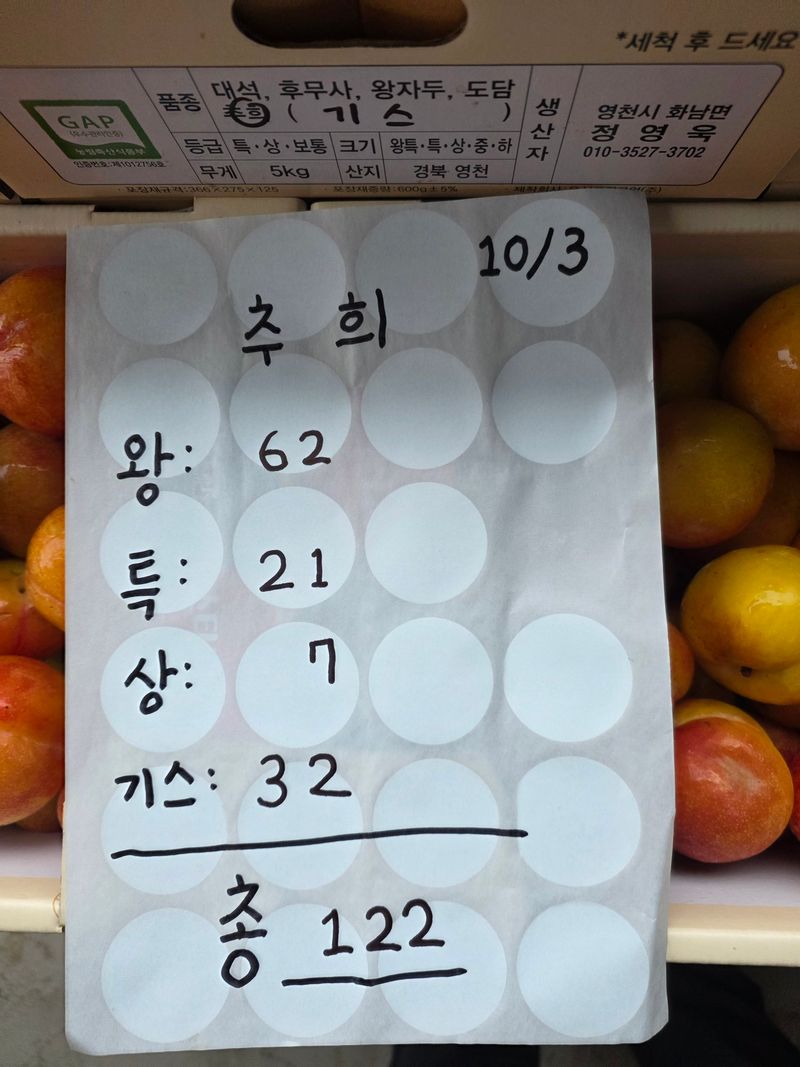 *세척 후 드세요
GAP
(우수관리인증)
농림축산식품부
인증번호:제1012756호
품종 대석, 후무사, 왕자두, 도담
추희 ( 기스 )
등급 특·상·보통 크기 왕특·특·상·중·하
무게 5kg 산지 경북 영천
생산자
영천시 화남면
정영욱
010-3527-3702
· 포장재규격:366×275×125 · 포장재중량:600g±5% · 제작회사:
10/3
추희
왕: 62
특: 21
상: 7
기스: 32
총 122